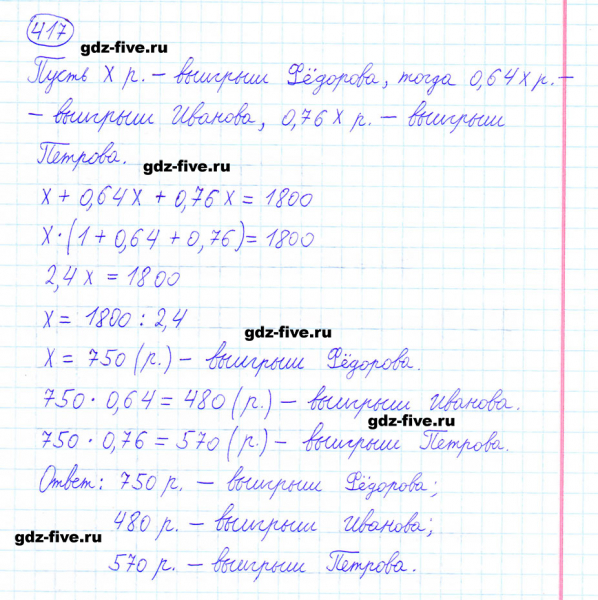 417
gdz-five.ru
Пусть X р. – выигрыш Фёдорова, тогда 0,64X р. –
– выигрыш Иванова, 0,76X р. – выигрыш
Петрова.
gdz-five.ru
X + 0,64X + 0,76X = 1800
X·(1 + 0,64 + 0,76) = 1800
2,4X = 1800
X = 1800 : 2,4
gdz-five.ru
X = 750 (р.) – выигрыш Фёдорова.
750 · 0,64 = 480 (р.) – выигрыш Иванова.
gdz-five.ru
750 · 0,76 = 570 (р.) – выигрыш Петрова.
Ответ: 750 р. – выигрыш Фёдорова;
480 р. – выигрыш Иванова;
gdz-five.ru
570 р. – выигрыш Петрова.